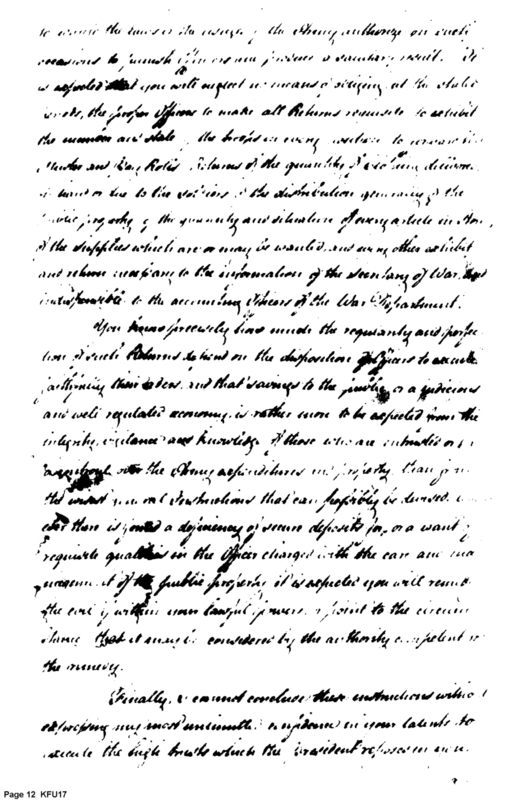 the Army authorize on such
occasions to punish offenders and produce a salutary result. It
is expected that you will neglect no means of obliging, at the stated
periods, the proper Officers to make all Returns requisite to exhibit
the number and state of the troops in every position to
Muster and Pay Rolls, Returns of the quantity of
on hand or due to the soldiers of the distribution generally of the
public property of the quantity and situation of every article in
of the supplies which are or may be wanted, and every other exhibit
and return necessary to the information of the Secretary of War, and
indispensible to the accounting Officers of the War Department.
You know precisely how much the regularity and perfec-
tion of such Returns depend on the disposition of Officers to execute
faithfully their orders, and that savings to the public, or a judicious
and well regulated economy, is rather more to be expected from the
integrity, vigilance and knowledge of those who are intrusted
over the Army expenditures and property, than from
the wisest general Instructions that can possibly be devised.
ever there is found a deficiency of secure deposits for, or a want of
requisite qualities in the Officer charged with the care and ma
nagement of the public property it is expected you will remedy
the evil if within your lawful powers, or point to the circum
stance that it may be considered by the authority competent to
the remedy.
Finally, I cannot conclude these instructions without
expressing my most unlimited confidence in your talents to
execute the high trusts which the President reposes in you.
Page 12 KFU17